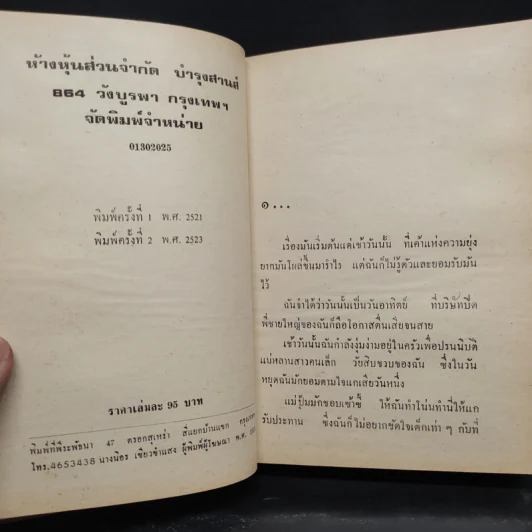 ห้างหุ้นส่วนจำกัด บำรุงสาส์น
864 วังบูรพา กรุงเทพฯ
จัดพิมพ์จำหน่าย
01302025
พิมพ์ครั้งที่ 1 พ.ศ. 2521
พิมพ์ครั้งที่ 2 พ.ศ. 2523
ราคาเล่มละ 95 บาท
พิมพ์ที่พีระพัธนา 47 ตรอกสุเหร่า สี่แยกบ้านแขก
โทร.4653438 นางน้อร เขียวขำแสง ผู้พิมพ์ผู้โฆษณา พ.ศ.
๑...
เรื่องมันเริ่มต้นแต่เช้าวันนั้น ที่เค้าแห่งความยุ่ง
ยากมันโผล่ขึ้นมารำไร แต่ฉันก็ไม่รู้ตัวและยอมรับมัน
ไว้
ฉันจำได้ว่าวันนั้นเป็นวันอาทิตย์ ที่บริษัทปิด
พี่ชายใหญ่ของฉันก็ถือโอกาสตื่นเสียจนสาย
เช้าวันนั้นฉันกำลังงุ่มง่ามอยู่ในครัวเพื่อปรนนิบัติ
แม่หลานสาวคนเล็ก วัยสิบขวบของฉัน ซึ่งในวัน
หยุดฉันมักยอมตามใจแกเสียวันหนึ่ง
แม่ปุ้มมักชอบเซ้าซี้ ให้ฉันทำโน่นทำนี่ให้แก
รับประทาน ซึ่งฉันก็ไม่อยากขัดใจเด็กเท่า ๆ กับที่